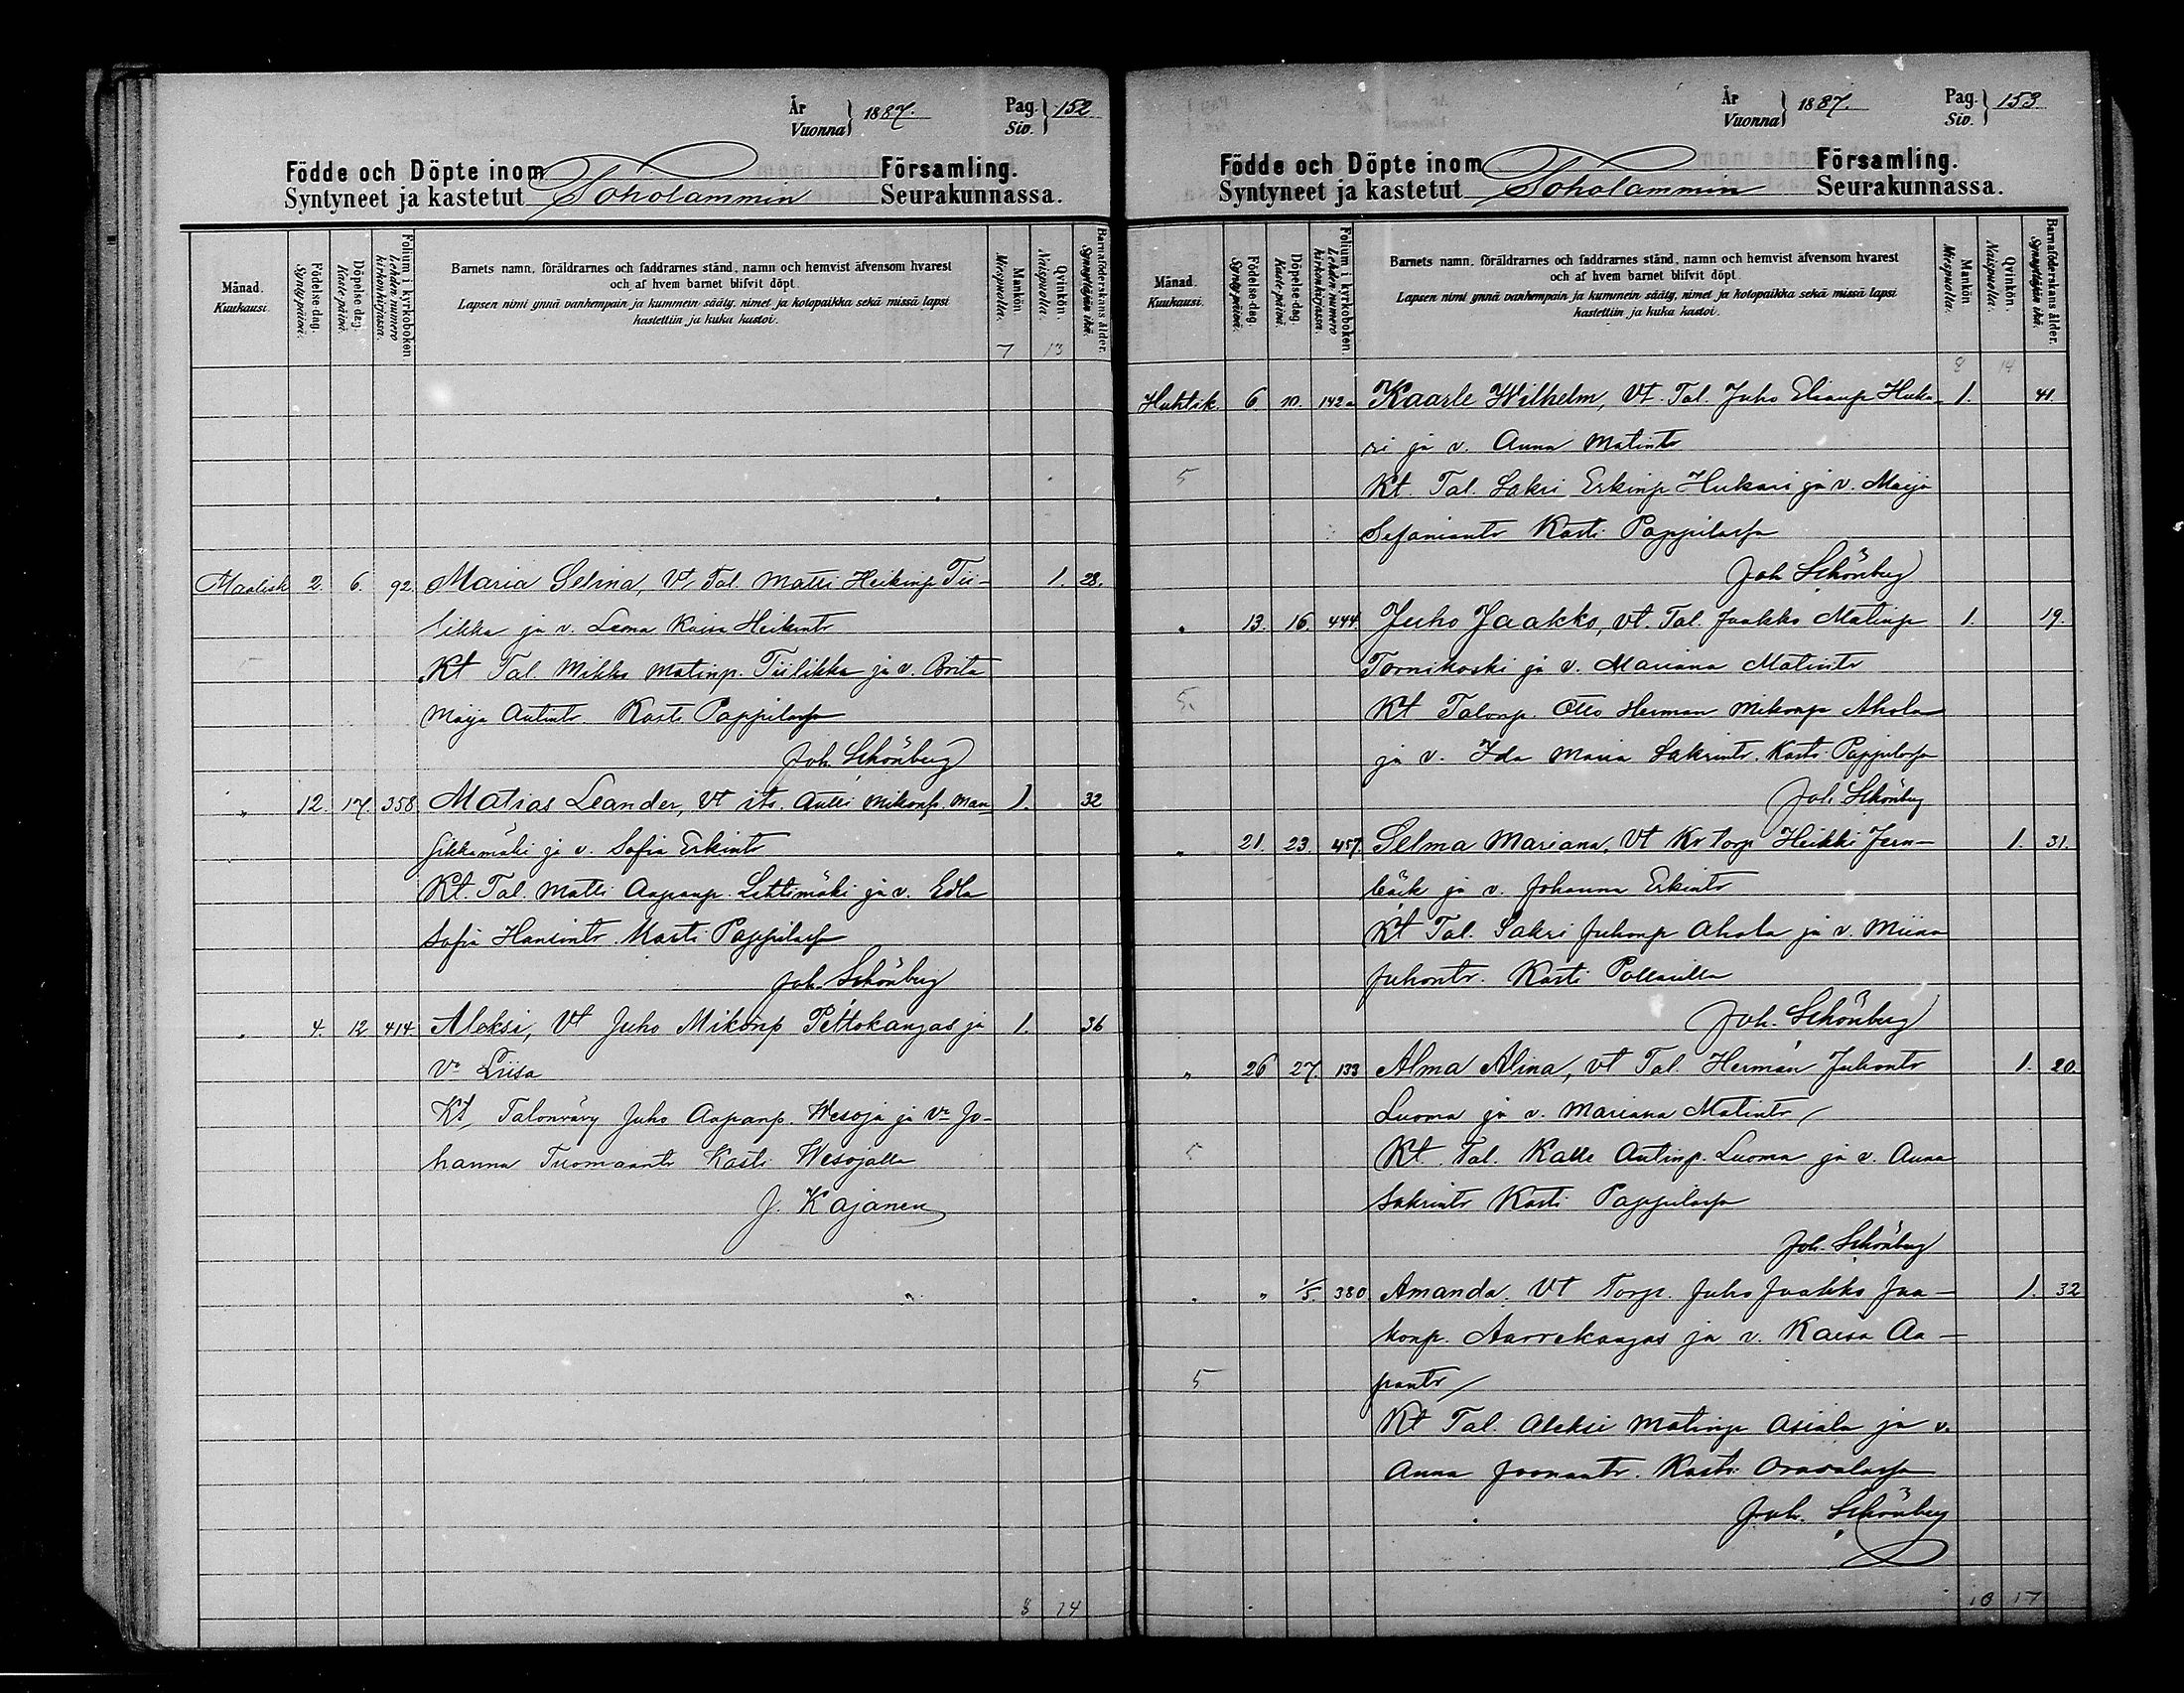 År
Vuonna } 1887.
Pag.
Siv. } 152
Födde och Döpte inom Församling.
Syntyneet ja kastetut Toholammin Seurakunnassa.
Månad.
Kuukausi.
Födelse-dag.
Synty-päivä.
Döpelse-dag.
Kaste-päivä.
Folium i kyrkoboken.
Lehden numero
kirkonkirjassa.
Barnets namn, föräldrarnes och faddrarnes stånd, namn och hemvist äfvensom hvarest
och af hvem barnet blifvit döpt.
Lapsen nimi ynnä vanhempain ja kummein sääty, nimet ja kotopaikka sekä missä lapsi
kastettiin ja kuka kastoi.
Mankön
Miespuolia.
Qvinkön.
Naispuolia.
Barnaföderskans ålder.
Synnyttäjän ikä.
7 13
Maalisk 2. 6. 92 Maria Selina, Vt Tal. Matti Heikinp Tii- 1. 28.
likka ja v. Leena Kaisa Heikintr
Kt Tal. Mikko Matinp. Tiilikka ja v. Brita
Maija Antintr Kasti Pappilassa
Joh. Schönberg
" 12. 17. 358 Matias Leander, Vt its. Antti Mikonp. Man- 1. 32
sikkamäki ja v. Sofia Erkintr
Kt. Tal. Matti Aapanp. Lehtimäki ja v. Edla
Sofia Hansintr. Kasti Pappilassa
Joh. Schönberg
" 4. 12 414. Aleksi, Vt Juho Mikonp Pettokangas ja 1. 36
vo Liisa
Kt, Talonvävy Juho Aapanp. Wesoja ja vo Jo-
hanna Tuomaantr Kasti Wesojalla
J. Kajanen
8 14
År
Vuonna } 1887.
Pag.
Siv. } 153
Födde och Döpte inom Församling.
Syntyneet ja kastetut Toholammin Seurakunnassa.
Månad.
Kuukausi.
Födelse-dag.
Synty-päivä.
Döpelse-dag.
Kaste-päivä.
Folium i kyrkoboken.
Lehden numero
kirkonkirjassa.
Barnets namn, föräldrarnes och faddrarnes stånd, namn och hemvist äfvensom hvarest
och af hvem barnet blifvit döpt.
Lapsen nimi ynnä vanhempain ja kummein sääty, nimet ja kotopaikka sekä missä lapsi
kastettiin ja kuka kastoi.
Mankön
Miespuolia.
Qvinkön.
Naispuolia.
Barnaföderskans ålder.
Synnyttäjän ikä.
8 14
Huhtik. 6 10. 142a Kaarle Wilhelm, Vt. Tal. Juho Elianp Huka- 1. 41.
ri ja v. Anna Matintr
5 Kt. Tal. Sakri Erkinp Hukari ja v. Maija
Sefaniantr Kasti Pappilassa
Joh Schönberg
" 13. 16. 444 Juho Jaakko, Vt. Tal. Jaakko Matinp 1. 19.
Tornikoski ja v. Mariana Matintr
5. Kt Talonp. Otto Herman Mikonp Ahola
ja v. Ida Maria Sakrintr. Kasti Pappilassa
Joh. Schönberg
" 21. 23. 457. Selma Mariana, Vt Kr torp Heikki Jern- 1. 31.
bäck ja v. Johanna Erkintr
Kt Tal. Sakri Juhonp Ahola ja v. Miina
Juhontr. Kasti
Joh. Schönberg
" 26 27. 133 Alma Alina, Vt Tal. Herman Juhontr 1. 20
Luoma ja v. Mariana Matintr
5 Kt. Tal. Kalle Antinp. Luoma ja v. Anna
Sakrintr Kasti Pappilassa
Joh. Schönberg
" " 1/5. 380. Amanda, Vt Torp. Juho Jaakko Jaa- 1. 32
konp. Aarrekangas ja v. Kaisa Aa-
5 pantr
Kt Tal. Aleksi Matinp Asiala ja v.
Anna Joonantr. Kasti Oravalassa
Joh. Schönberg
10 17